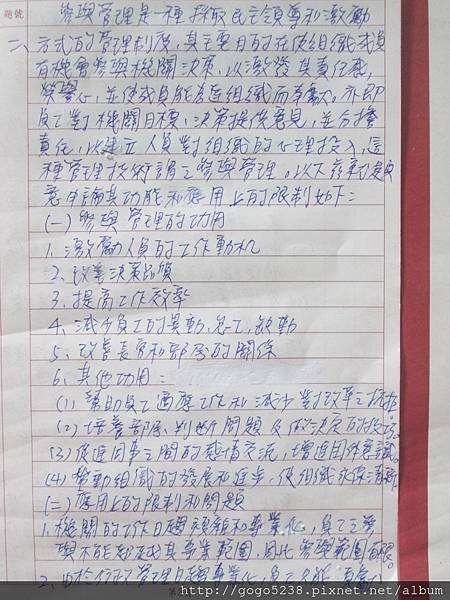 題號
參與管理是一種採取民主領導和激勵
二、方式的管理制度,其主要目的在使組織成員
有機會參與機關決策,以激發其責任感,
榮譽心,並使成員能為達組織而奮鬥。亦即
員工對機關目標、決策提供意見,並分擔
責任,以建立人員對組織的心理投入,這
種管理技術謂之參與管理。以下茲就是項
意旨論其功能和應用上的限制如下:
(一)參與管理的功用
1. 激勵人員的工作動机
2. 改善決策品質
3. 提高工作效率
4. 減少員工的異動、怠工、缺勤
5. 改善長官和部屬的關係
6. 其他功用:
(1) 幫助員工適應工作和減少對改革之抗拒。
(2) 培養部屬判斷問題及做決定的技巧。
(3) 促進同事之間的感情交流,增進團體意識。
(4) 帶動組織的發展和進步,使組織永保清新。
(二)應用上的限制和問題
1. 機關的工作日趨複雜和專業化,員工之參
與不能超越其專業範圍,因此參與範圍有限。
2. 由於行政管理日趨專業化,員工
http://gogo5238.pixnet.net/album